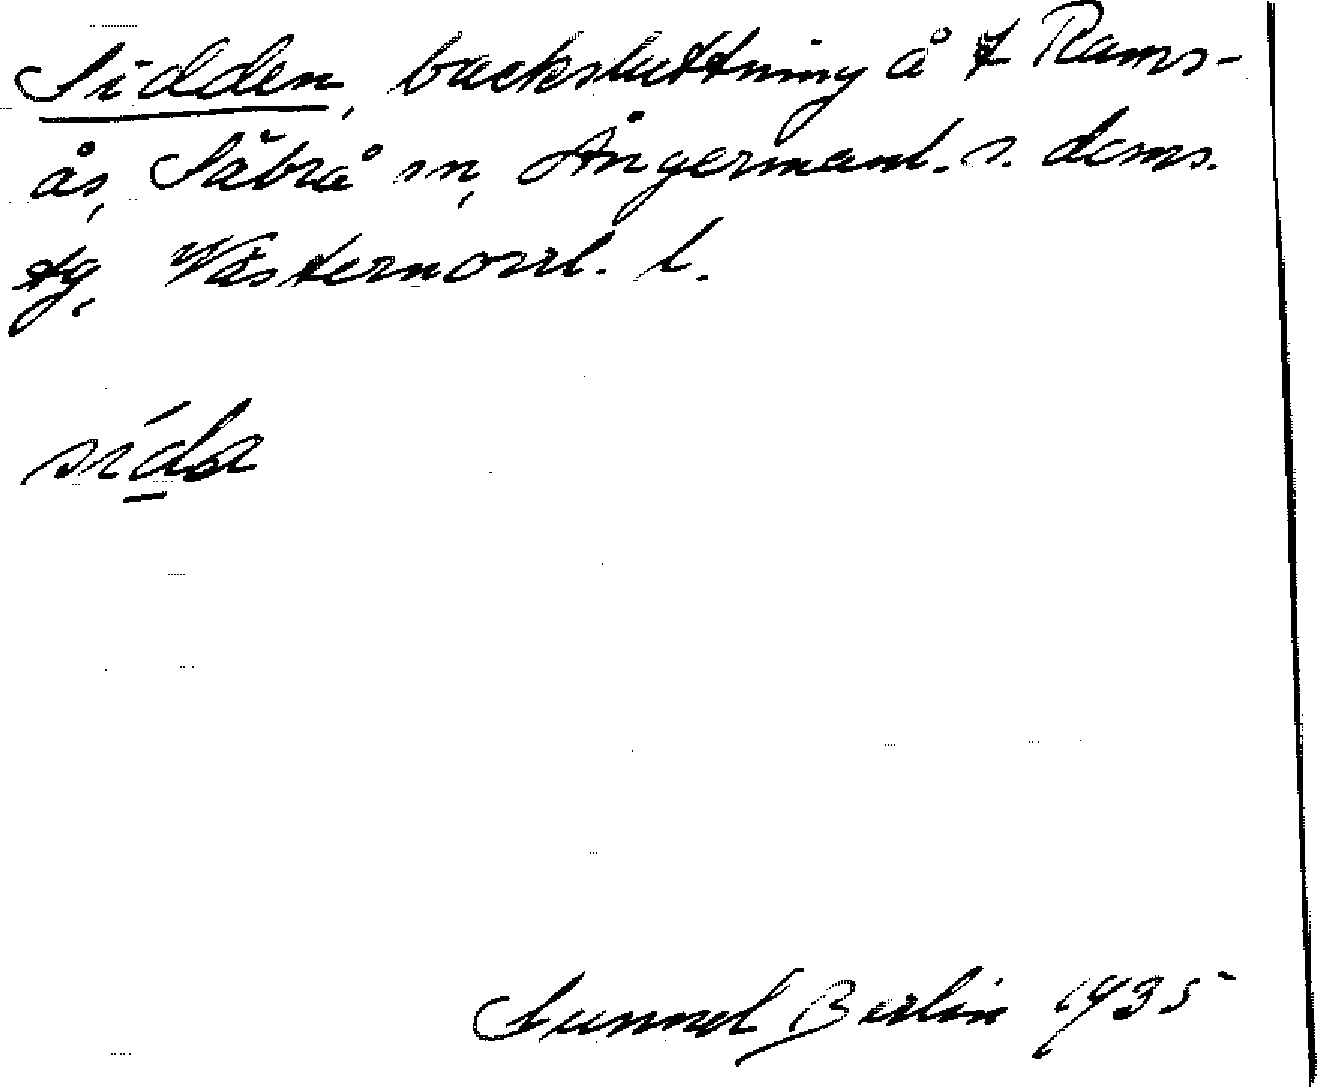 Sidden, backsluttning å f Rams-
ås, Säbrå sn, Ångermanl. s. doms.
tg, Västernorrl. l.
sida
Gunnel Berlin 1935